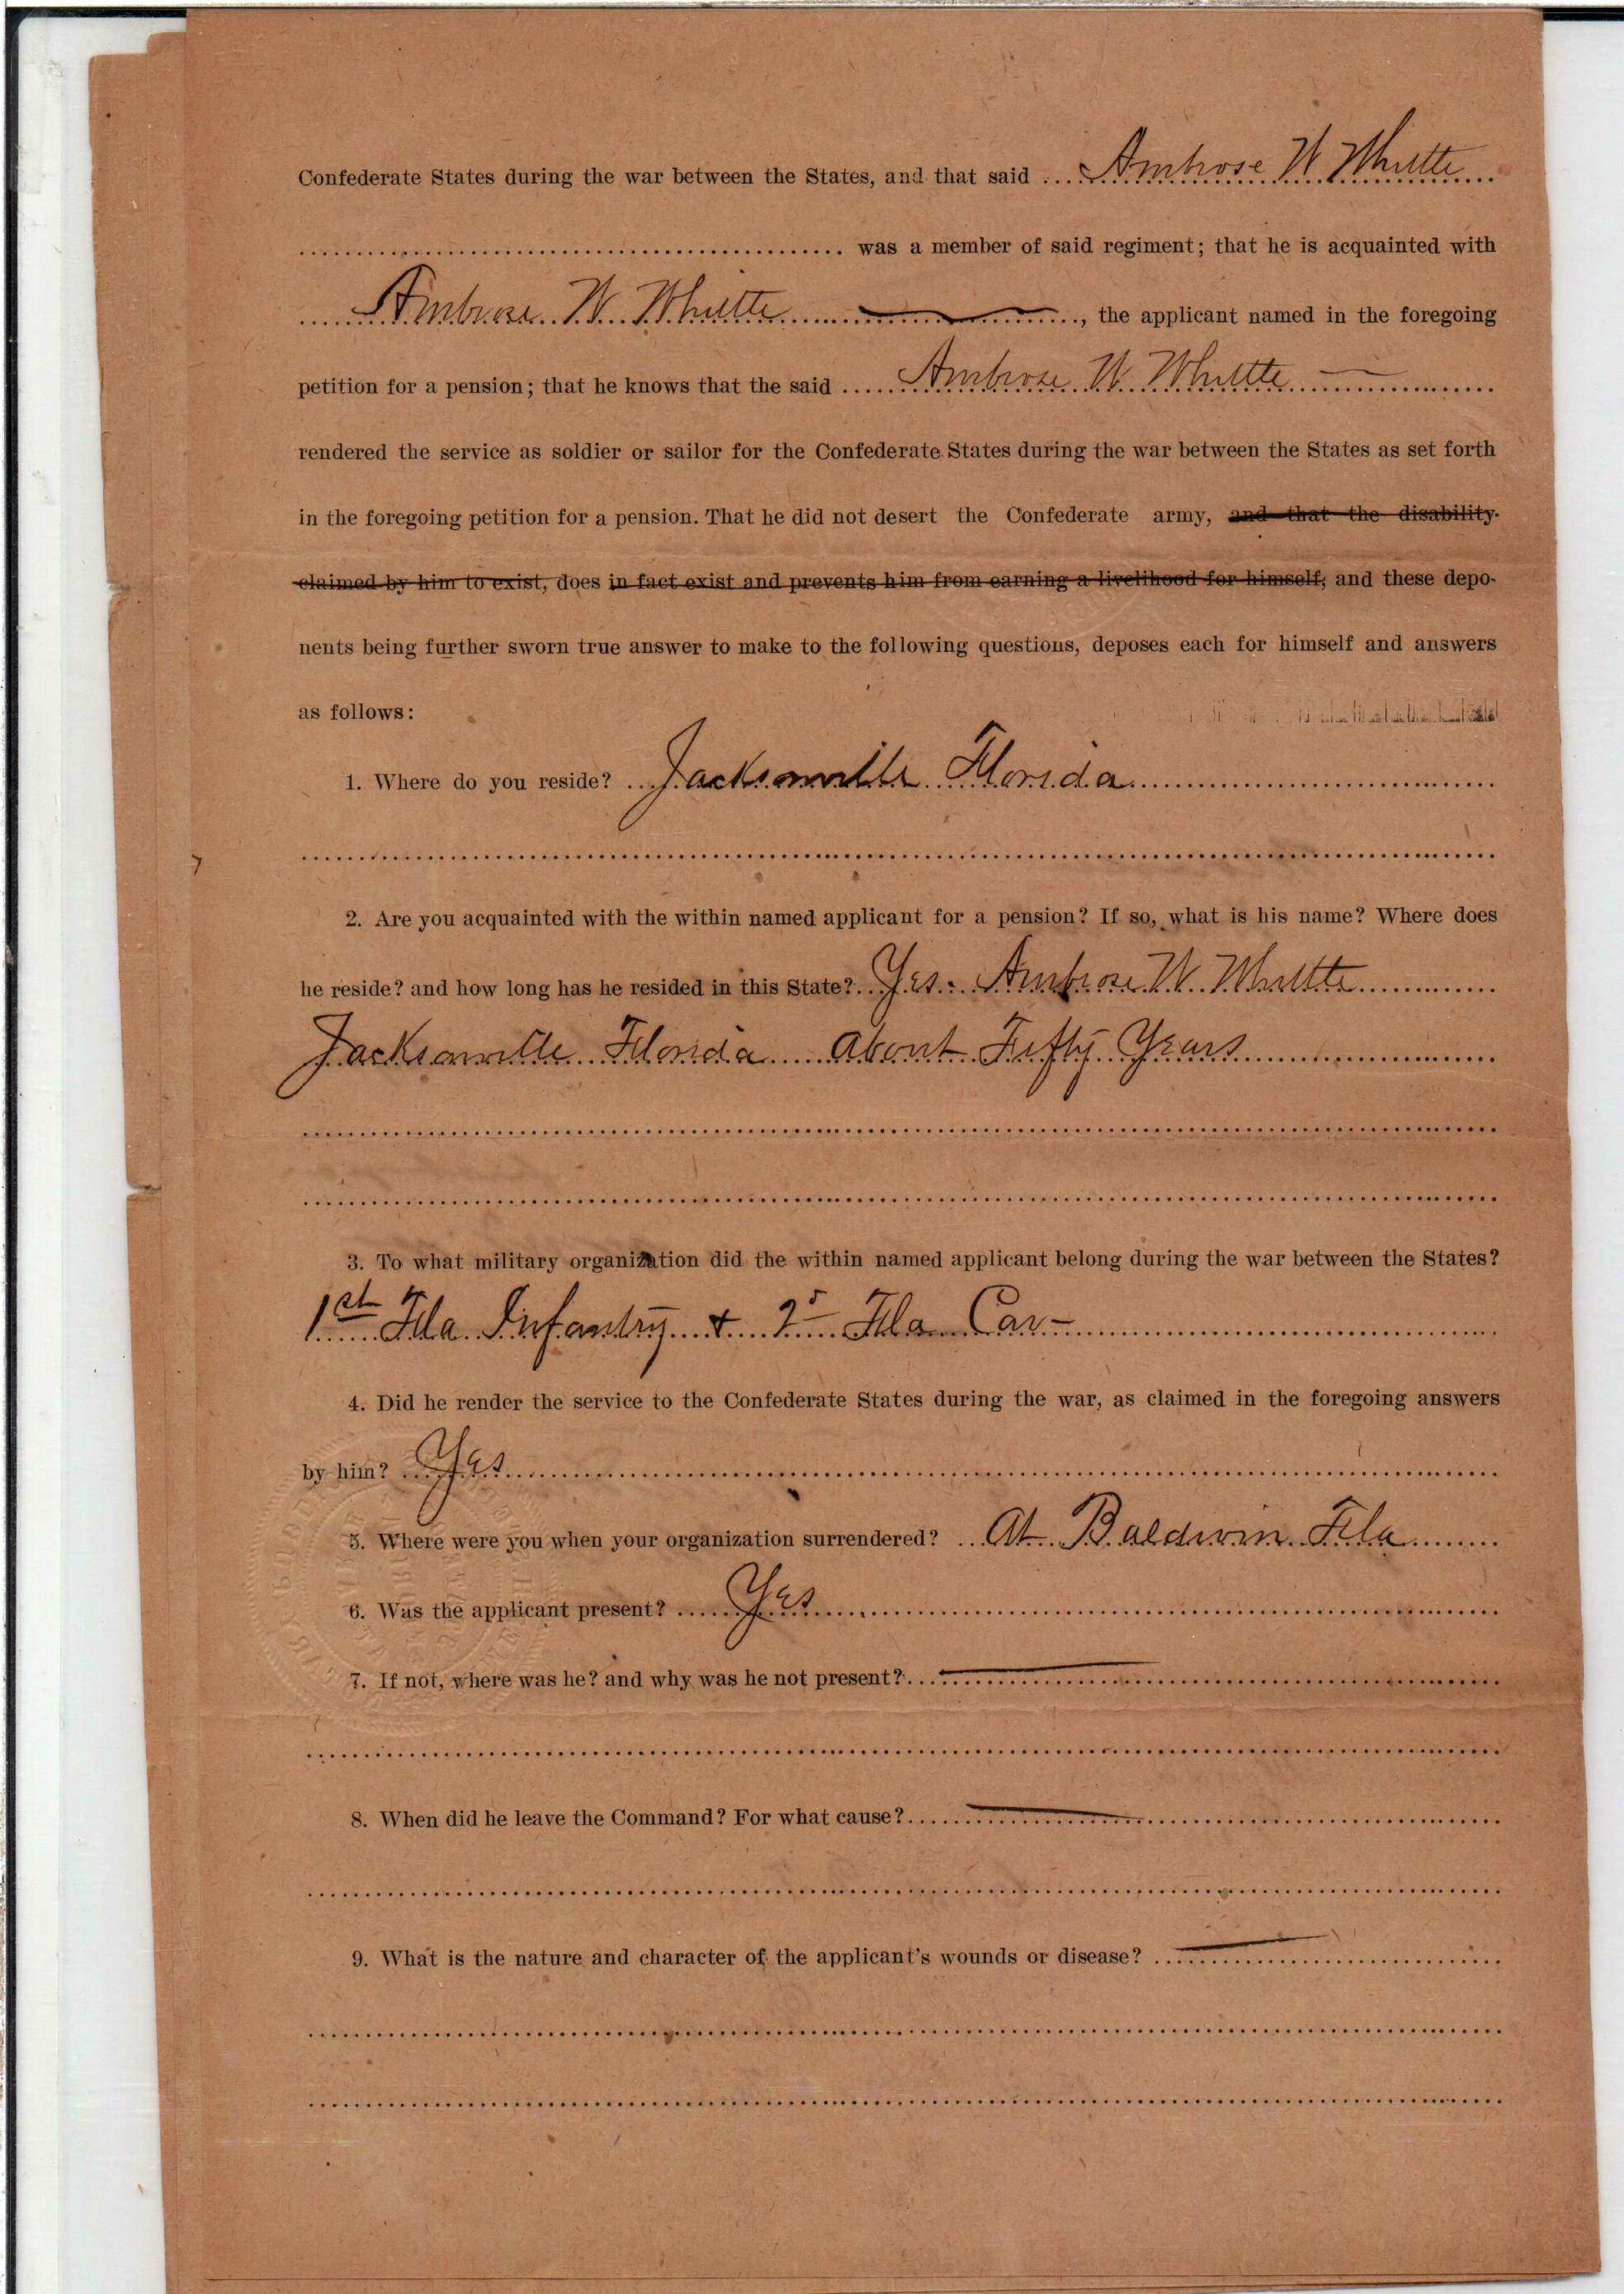 Confederate States during the war between the States, and that said Ambrose W. Whittle
was a member of said regiment; that he is acquainted with
Ambrose W. Whittle, the applicant named in the foregoing
petition for a pension; that he knows that the said Ambrose W. Whittle
rendered the service as soldier or sailor for the Confederate States during the war between the States as set forth
in the foregoing petition for a pension. That he did not desert the Confederate army, and that the disability
claimed by him to exist, does in fact exist and prevents him from earning a livelihood for himself, and these depo-
nents being further sworn true answer to make to the following questions, deposes each for himself and answers
as follows:
1. Where do you reside? Jacksonville Florida
2. Are you acquainted with the within named applicant for a pension? If so, what is his name? Where does
he reside? and how long has he resided in this State? Yes. Ambrose W. Whittle
Jacksonville Florida About Fifty Years
3. To what military organization did the within named applicant belong during the war between the States?
1st Fla Infantry & 2 Fla Cav-
4. Did he render the service to the Confederate States during the war, as claimed in the foregoing answers
by him? Yes
5. Where were you when your organization surrendered? At Baldwin Fla
6. Was the applicant present? Yes
7. If not, where was he? and why was he not present?
8. When did he leave the Command? For what cause?
9. What is the nature and character of the applicant's wounds or disease?